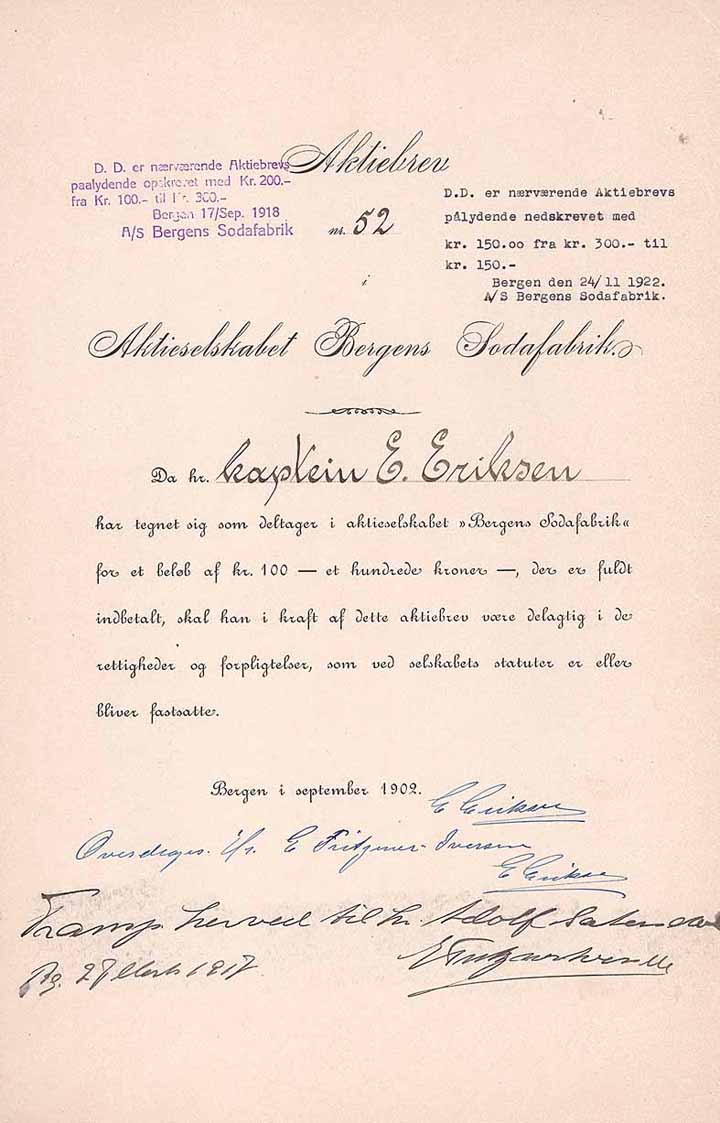 Aktiebrev
D. D. er nærværende Aktiebrevs
paalydende opskrevet med Kr. 200.-
fra Kr. 100.- til Kr. 300.-
Bergen 17/Sep. 1918
A/S Bergens Sodafabrik
nr. 52
D.D. er nærværende Aktiebrevs
pålydende nedskrevet med
kr. 150.oo fra kr. 300.- til
kr. 150.-
Bergen den 24/11 1922.
A/S Bergens Sodafabrik.
i
Aktieselskabet Bergens Sodafabrik.
Da hr. kaptein E. Eriksen
har tegnet sig som deltager i aktieselskabet »Bergens Sodafabrik«
for et beløb af kr. 100 — et hundrede kroner —, der er fuldt
indbetalt, skal han i kraft af dette aktiebrev være delagtig i de
rettigheder og forpligtelser, som ved selskabets statuter er eller
bliver fastsatte.
Bergen i september 1902.
E Eriksen
Overdrages E Fritzner-Iversen
E Eriksen
herved til hr. Adolf
1917